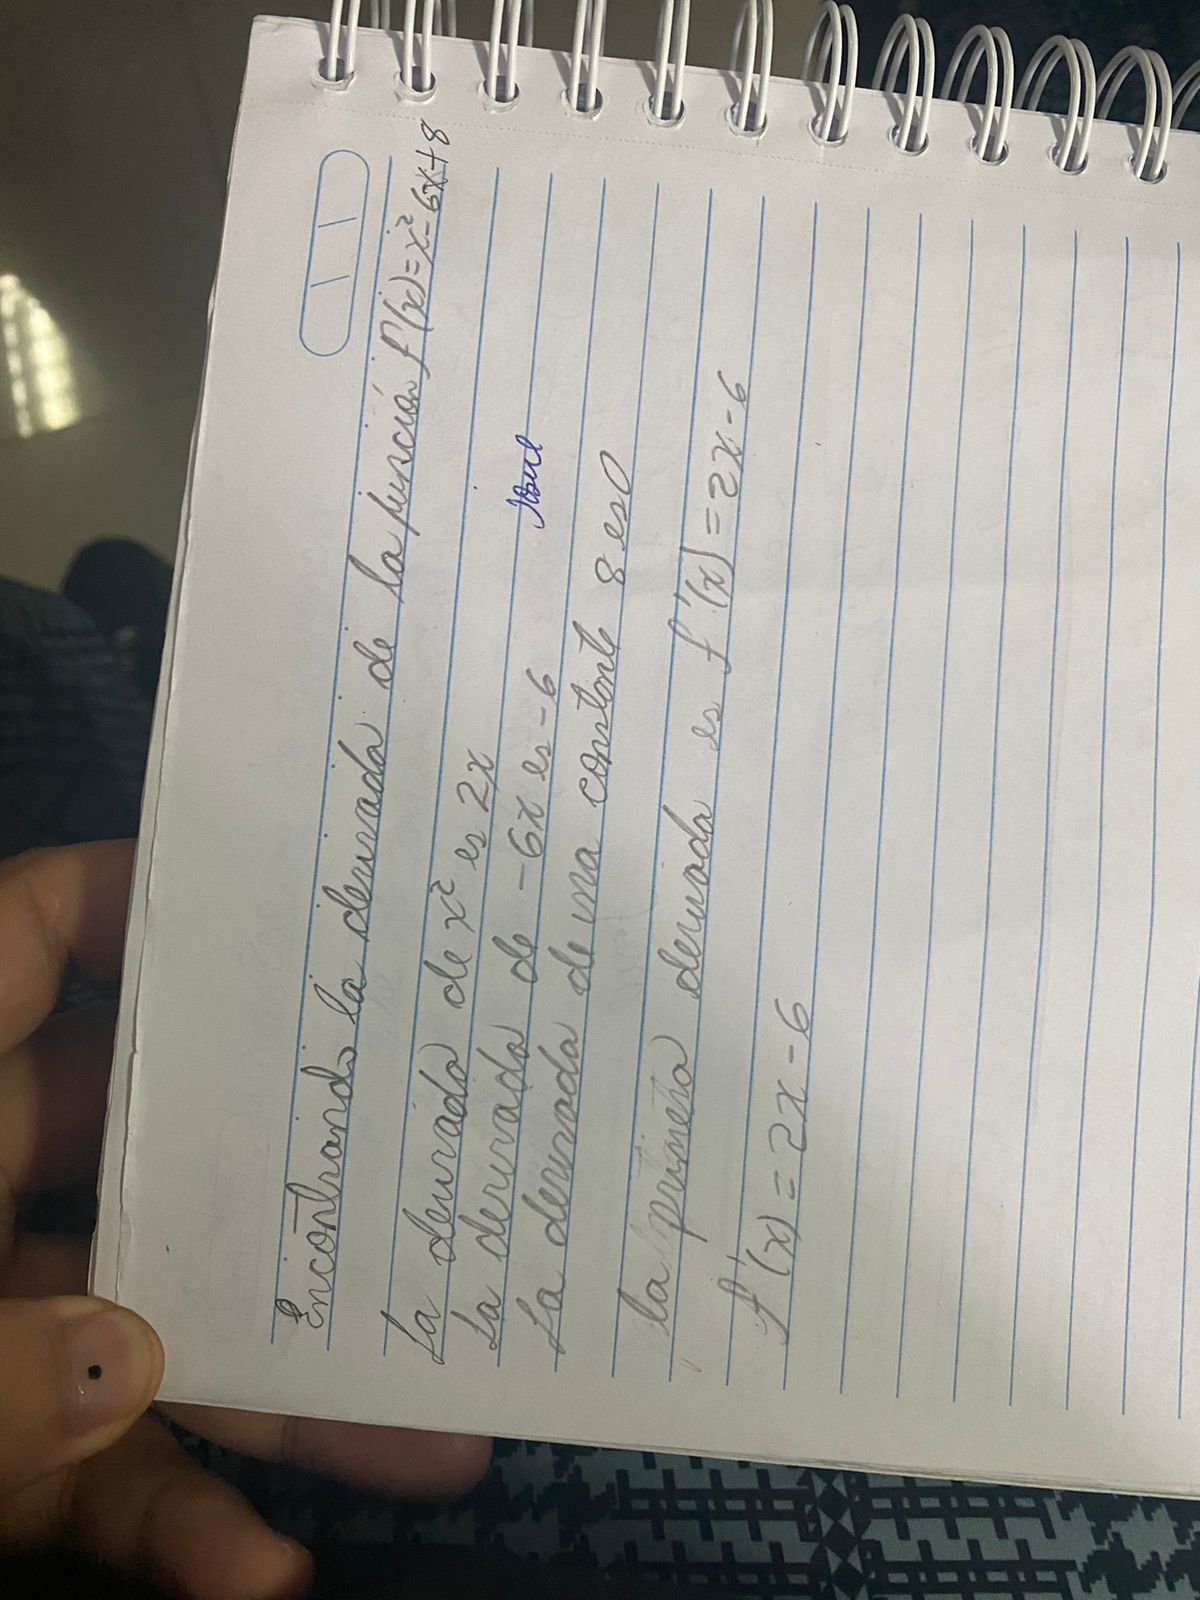 Encontrando la derivada de la función f'(x)=x²-6x+8
La derivada de x² es 2x
La derivada de -6x es -6
La derivada de una constante 8 es 0
la primera derivada es f'(x)=2x-6
f'(x)=2x-6